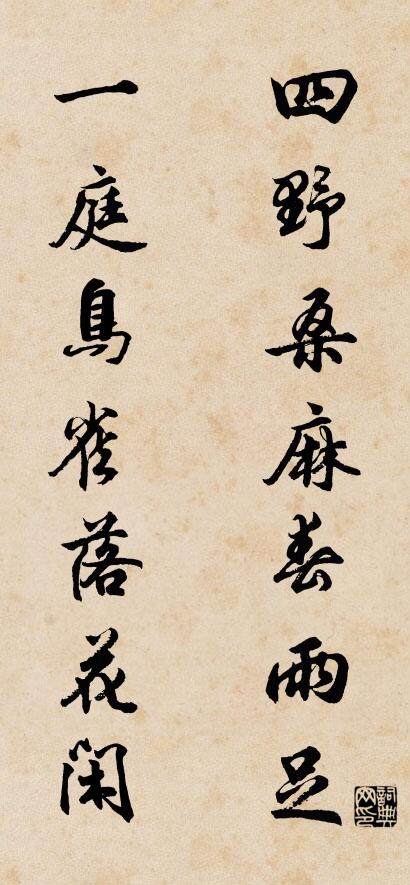 四野桑麻春雨足
一庭鳥雀落花閑
詞典网印